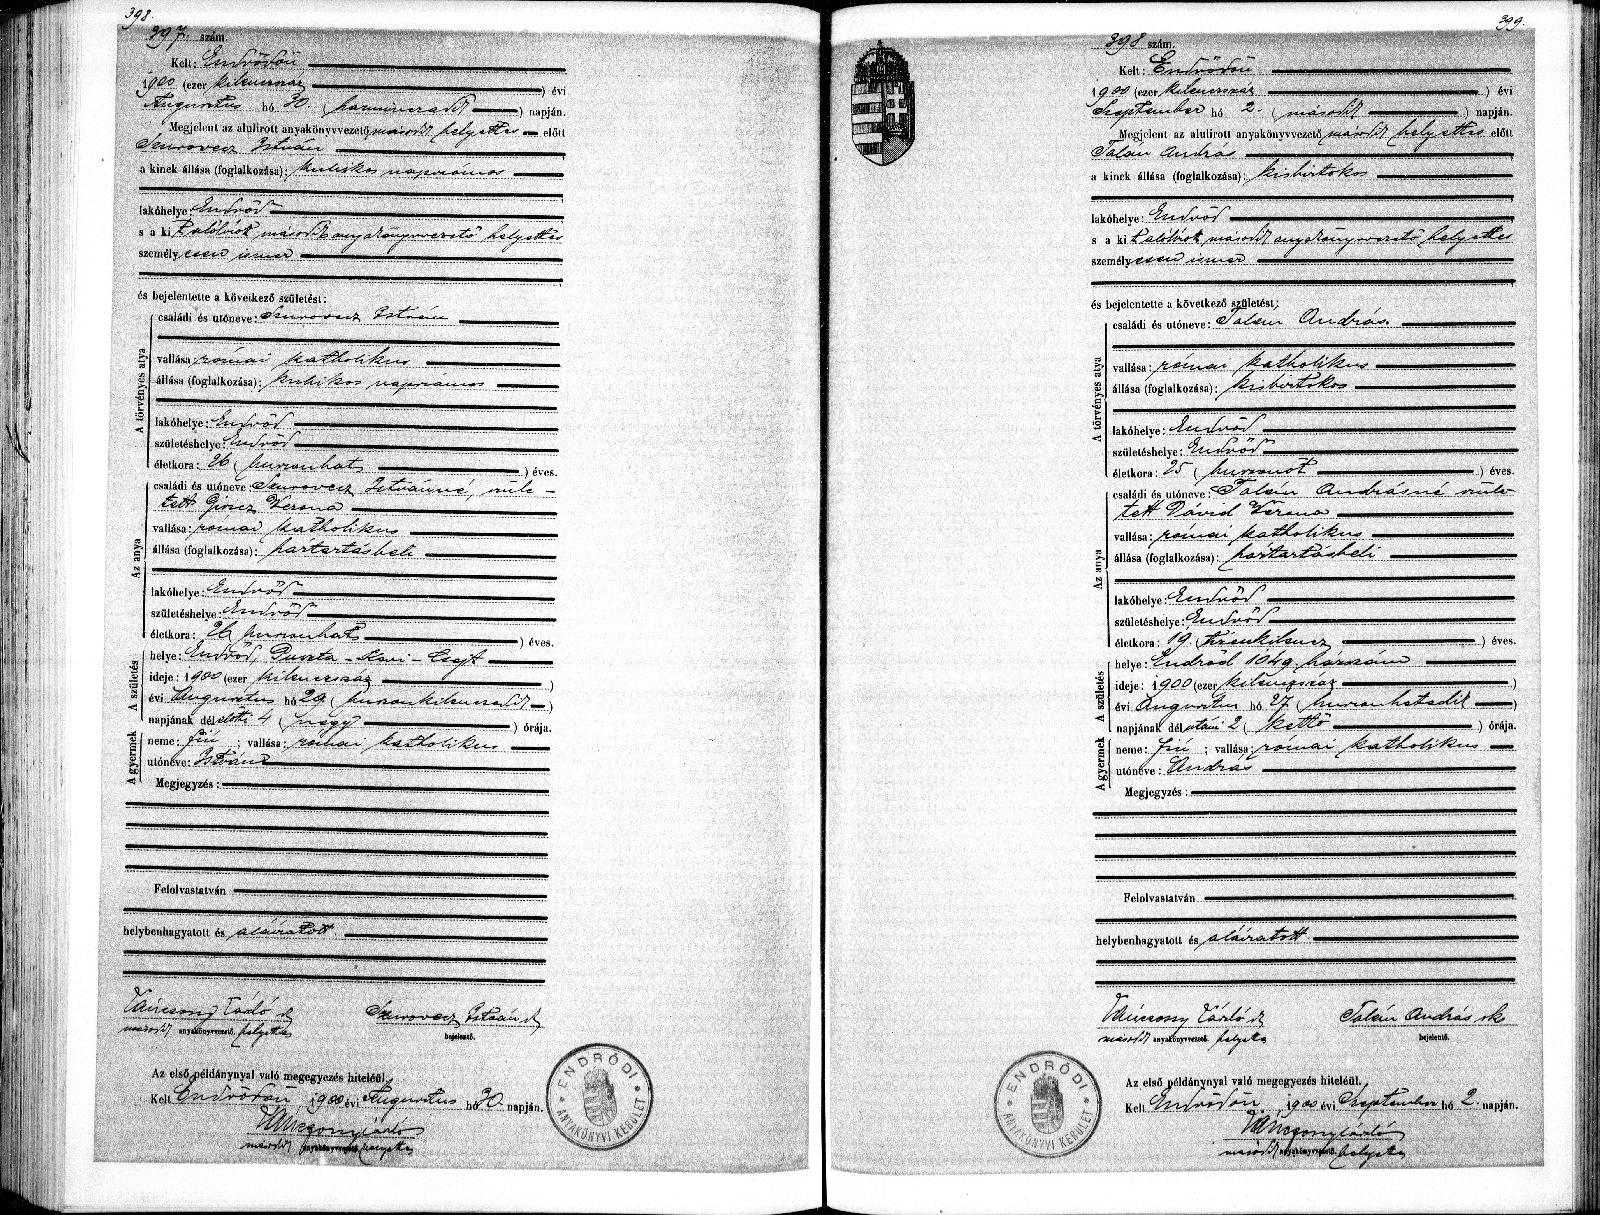 398.
397. szám.
Kelt: Endrődön
1900 (ezer kilencszáz) évi
Augusztus hó 30. (harminczadik) napján.
Megjelent az alulirott anyakönyvvezető második helyettes előtt
Szurovecz István
a kinek állása (foglalkozása): kubikos napszámos
lakóhelye: Endrőd
s a kit alólirók második anyakönyvvezető helyettes
személyesen ismer
és bejelentette a következő születést:
A törvényes atya
családi és utóneve: Szurovecz István
vallása: római katholikus
állása (foglalkozása): kubikos napszámos
lakóhelye: Endrőd
születéshelye: Endrőd
életkora: 26 (huszonhat) éves.
Az anya
családi és utóneve: Szurovecz Istvánné, szüle-
tett Giricz Verona
vallása: római katholikus
állása (foglalkozása): háztartásbeli
lakóhelye: Endrőd
születéshelye: Endrőd
életkora: 26 (huszonhat) éves.
A születés
helye: Endrőd, Puszta-Kovi-Csejt
ideje: 1900 (ezer kilenczszáz)
évi Augusztus hó 29 (huszonkilenczedik)
napjának dél előtti 4 (négy) órája.
A gyermek
neme: fiú; vallása: római katholikus
utóneve: István
Megjegyzés:
Felolvastatván
helybenhagyatott és aláiratott
Szurovecz István
második anyakönyvvezető helyettes
bejelentő.
Az első példánynyal való megegyezés hiteléül.
Kelt Endrődön 1900 évi Augusztus hó 30. napján.
második anyakönyvvezető helyettes
ENDRŐDI
ANYAKÖNYVI KERÜLET
399.
398 szám.
Kelt: Endrődön
1900 (ezer kilenczszáz) évi
Szeptember hó 2. (második) napján.
Megjelent az alulirott anyakönyvvezető második helyettes előtt
Talán András
a kinek állása (foglalkozása): kisbirtokos
lakóhelye: Endrőd
s a kit alólirók második anyakönyvvezető helyettes
személyesen ismer
és bejelentette a következő születést:
A törvényes atya
családi és utóneve: Talán András
vallása: római katholikus
állása (foglalkozása): kisbirtokos
lakóhelye: Endrőd
születéshelye: Endrőd
életkora: 25 (huszonöt) éves.
Az anya
családi és utóneve: Talán Andrásné szüle-
tett Dávid Verona
vallása: római katholikus
állása (foglalkozása): háztartásbeli
lakóhelye: Endrőd
születéshelye: Endrőd
életkora: 19 (tizenkilencz) éves.
A születés
helye: Endrőd 1049 házszám
ideje: 1900 (ezer kilenczszáz)
évi Augusztus hó 27 (huszonhetedik)
napjának dél utáni 2 (kettő) órája.
A gyermek
neme: fiú; vallása: római katholikus
utóneve: András
Megjegyzés:
Felolvastatván
helybenhagyatott és aláiratott
Talán András sk
második anyakönyvvezető helyettes
bejelentő.
Az első példánynyal való megegyezés hiteléül.
Kelt Endrődön, 1900 évi Szeptember hó 2. napján.
második anyakönyvvezető helyettes
ENDRŐDI
ANYAKÖNYVI KERÜLET